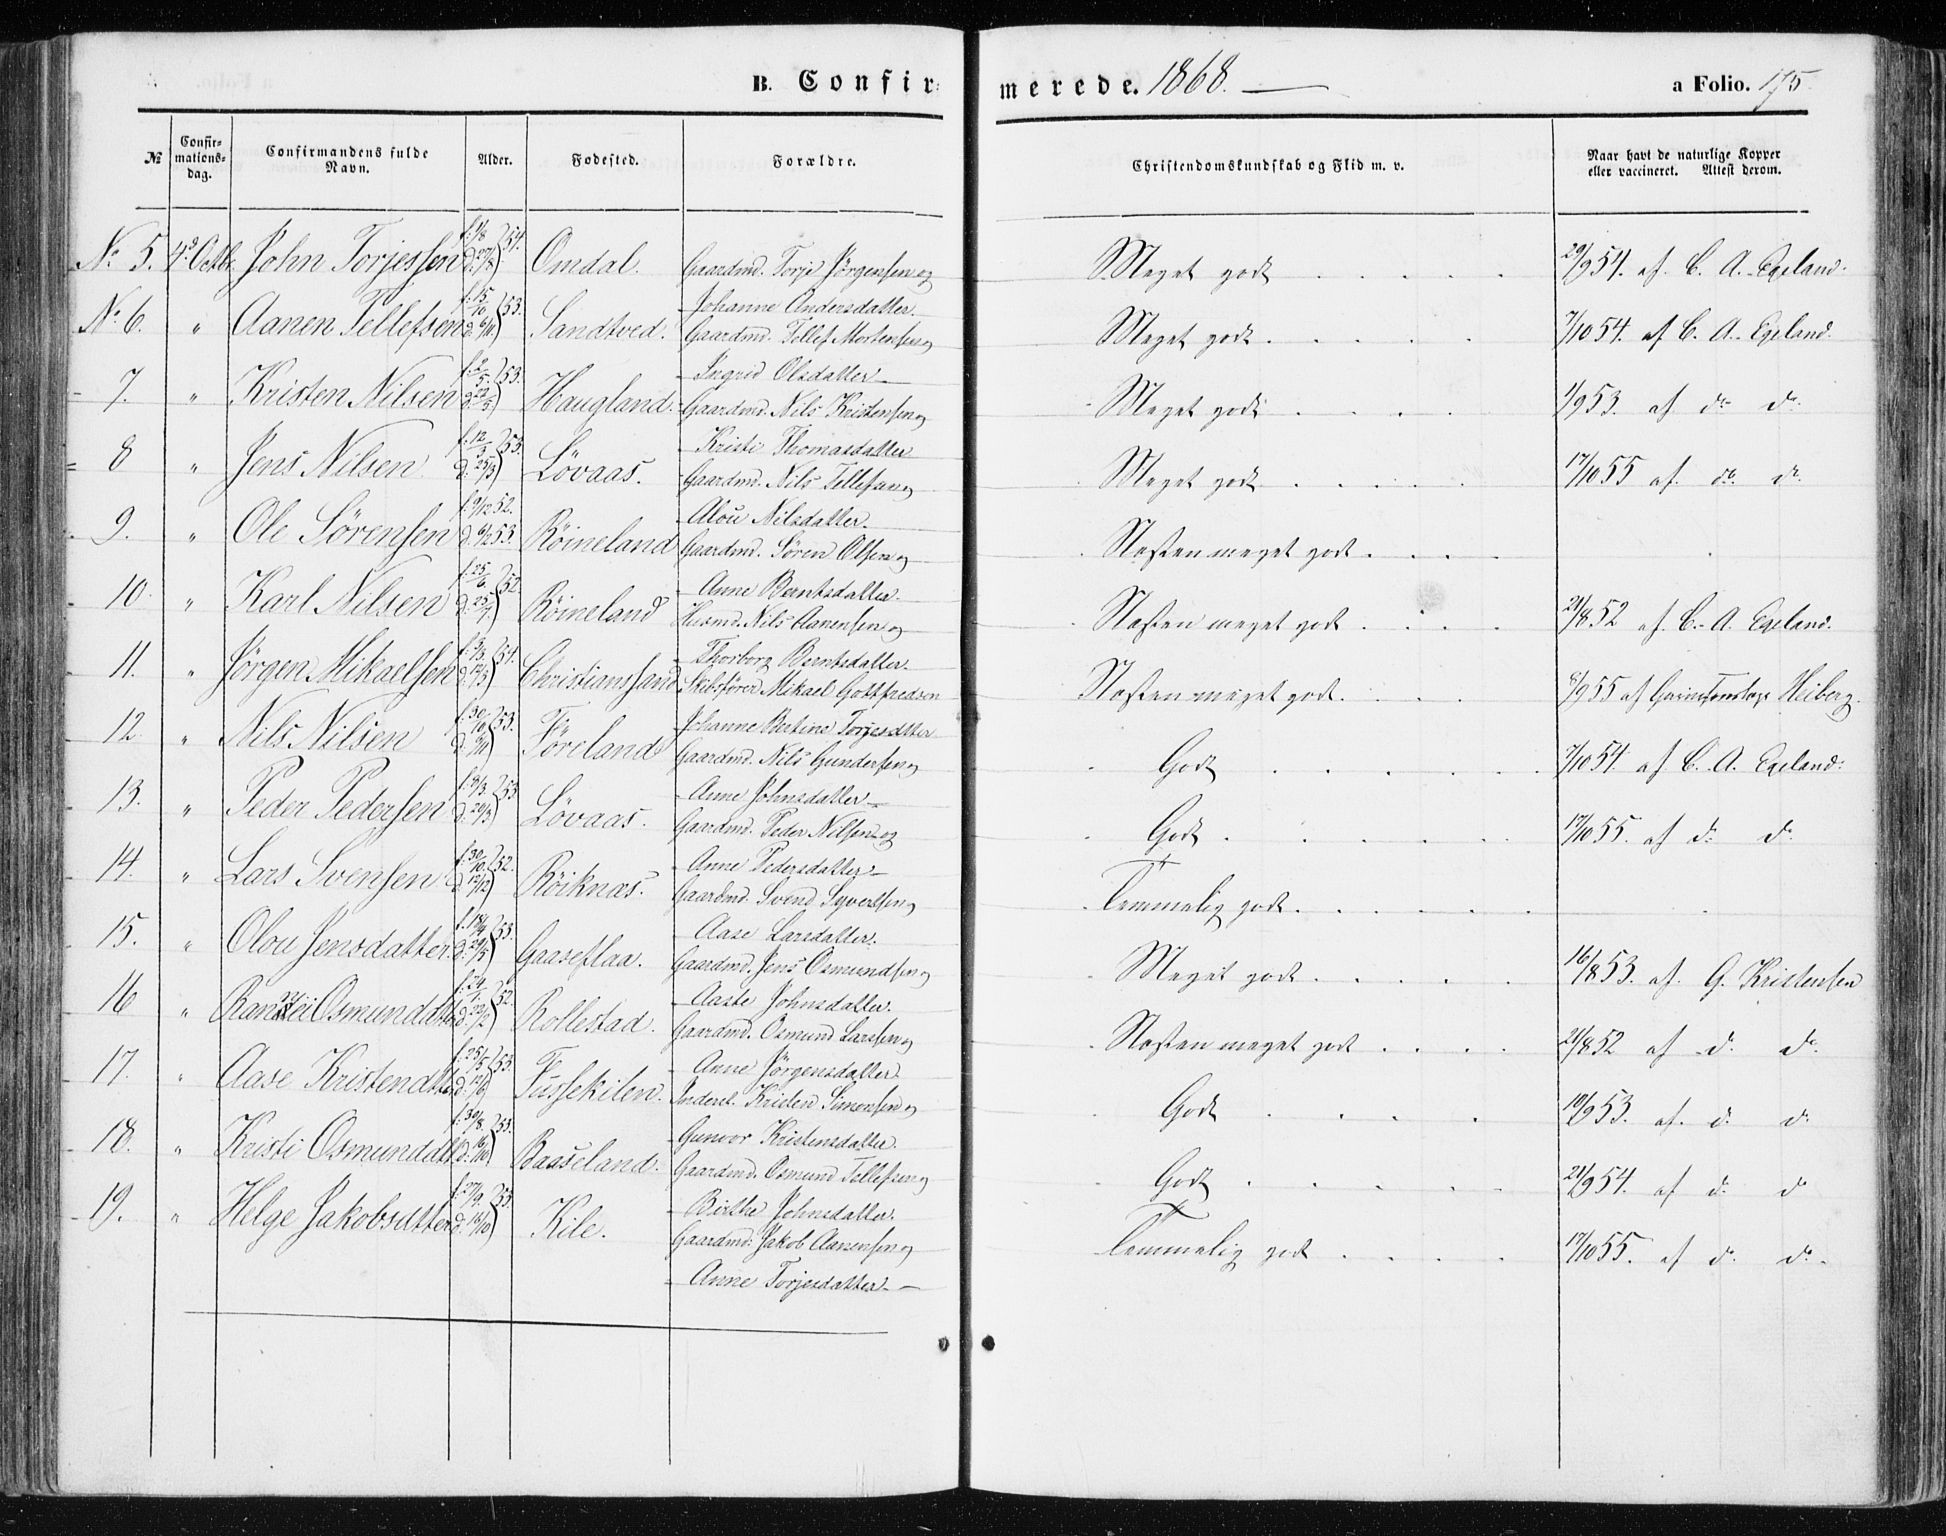 B. Confir-
merede. 1868. —
a Folio. 175.
№ Confir-mations-dag. Confirmandens fulde Navn. Alder. Fødested. Forældre. Christendomskundskab og Flid m. v. Naar havt de naturlige Kopper eller vaccineret. Attest derom.
No 5. 4de Octbr. John Torjessen f. 1/8 d. 27/8 54. Omdal. Gaardmd. Torje Jørgensen og Meget godt . . . . . 29/9 54. af C. A. Egeland.
Johanne Andersdatter
No 6. " Aanen Tellefsen f. 15/10 d. 6/11 53. Sandtved. Gaardmd. Tellef Mortensen og Meget godt . . . . . 7/10 54. af C. A. Egeland.
Ingrid Olsdatter
7. " Kristen Nilsen f. 2/5 d. 22/5 53. Haugland. Gaardmd. Nils Kristensen og Meget godt . . . . 1/9 53. af do do
Kristi Thomasdatter
8 " Jens Nilsen f. 12/3 d. 25/3 53. Løvaas. Gaardmd. Nils Tellefsen og Meget godt . . . . . 17/10 55 af do do
Alou Nilsdatter.
9. " Ole Sørensen f. 9/12 52. d. 6/2 53. Røineland Gaardmd. Søren Olsen og Næsten meget godt . . . .
Anne Berntsdatter.
10. " Karl Nilsen f. 25/6 d. 25/7 52 Røineland Husmd. Nils Aanensen og Næsten meget godt . . . . 21/8 52 af C. A. Egeland.
Thorborg Berntsdatter.
11. " Jørgen Mikaelsen f. 3/3 d. 12/3 54. Christianssand Skibsfører Mikael Gottfredsen Næsten meget godt . . . . 6/9 55 af Garnisonslæge Heiberg.
Johanne Bertine Torjesdtter
12. " Nils Nilsen f. 30/10 53. Føreland Gaardmd. Nils Gundersen og Godt . . . . . . 7/10 54. af C. A. Egeland.
Anne Johnsdatter
13. " Peder Pedersen f. 8/3. d. 20/3 53 Løvaas. Gaardmd. Peder Nilsen og Godt . . . . . 17/10 55. af do do
Anne Pedersdatter
14. " Lars Svensen f. 30/10. d. 12/12 52. Røiknæs. Gaardmd. Svend Syvertsen og Temmelig godt . . . . . .
Aase Larsdatter.
15. " Olou Jensdatter f. 18/4 d. 29/5 53. Gaaseflaa. Gaardmd. Jens Osmundsen og Meget godt . . . . . 16/8 53. af G. Kristensen
Aaste Johnsdatter.
16 " Osmunddatter f. 24/1. d. 22/2 52. Rollestad. Gaardmd. Osmund Larssen og Næsten meget godt . . . . 21/8 52 af do do
Anne Jørgensdatter.
17. " Aase Kristendatter f. 25/5 d. 12/6 53. Tussekilen. Inderst. Kristen Simonsen og Godt . . . . . 10/9 53. af. do do
Gunvor Kristensdatter
18. " Kristi Osmunddatt. f. 30/8. d. 16/10 53. Baaseland. Gaardmd. Osmund Tellefsen og Godt . . . . . . 21/9 54. af do do
Birthe Johnsdatter.
19. " Helge Jakobsdatter f. 27/9 d. 16/10 53. Kile. Gaardmd. Jakob Aanensen og Temmelig godt . . . . 17/10 55. af do do.
Anne Torjesdatter